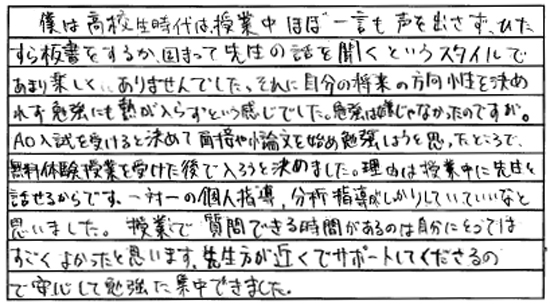 僕は高校生時代は、授業中ほぼ一言も声を出さず、ひた
すら板書をするか、固まって先生の話を聞くというスタイルで
あまり楽しくありませんでした。それに自分の将来の方向性を決め
れず勉強にも熱が入らずという感じでした。勉強は嫌じゃなかったのですが。
AO入試を受けると決めて面接や小論文を始め勉強しようと思ったところで、
無料体験授業を受けた後で入ろうと決めました。理由は授業中に先生と
話せるからです。一対一の個人指導、分析指導がしっかりしていていいなと
思いました。授業で質問できる時間があるのは自分にとっては
すごくよかったと思います。先生方が近くでサポートしてくださるの
で安心して勉強に集中できました。